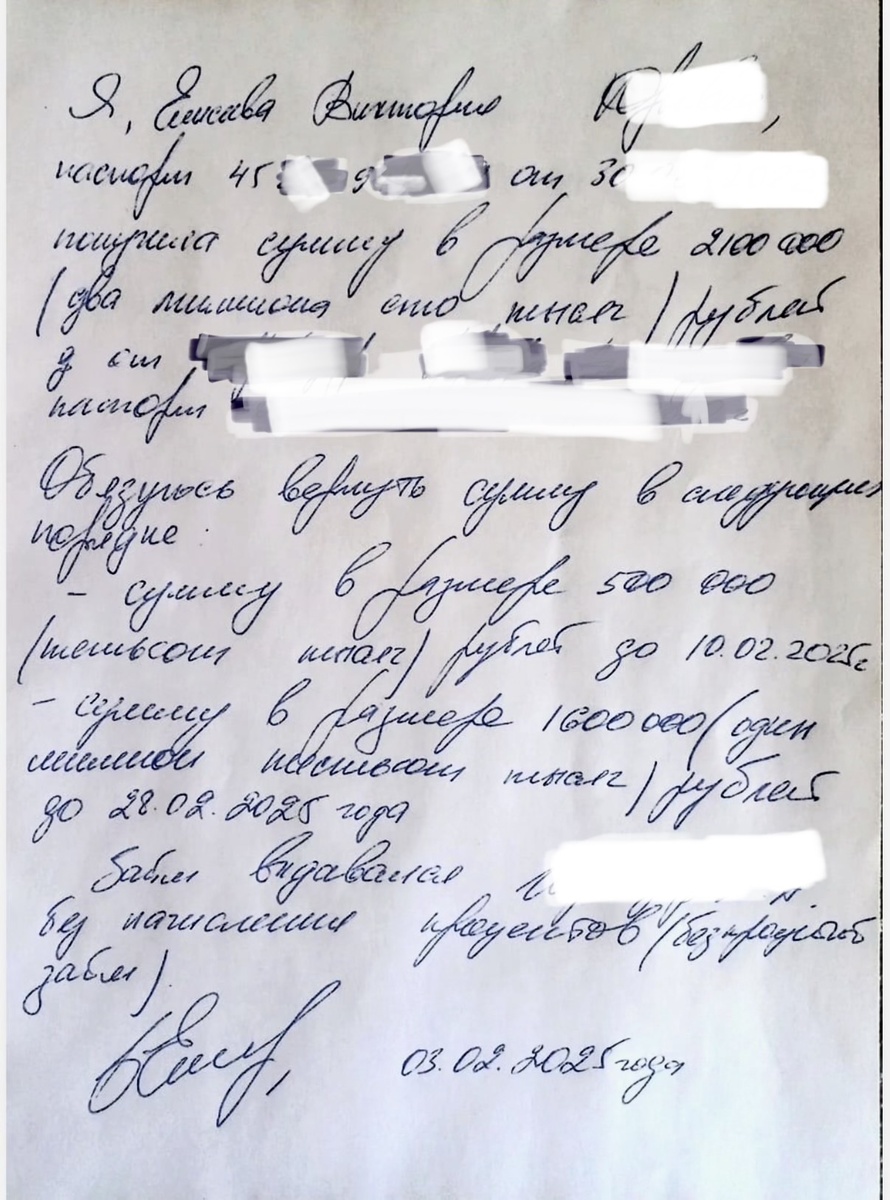 Я, Елисава Виктория
паспорт 45 от 30
получила сумму в размере 2100 000
(два миллиона сто тысяч) рублей
от
паспорт
Обязуюсь вернуть сумму в следующем
порядке:
- сумму в размере 500 000
(пятьсот тысяч) рублей до 10.02.2025г
- сумму в размере 1600 000 (один
миллион шестьсот тысяч) рублей
до 28.02.2025 года
Займ выдавался
без начисления процентов (безпроцент
займ).
03.02.2025 года